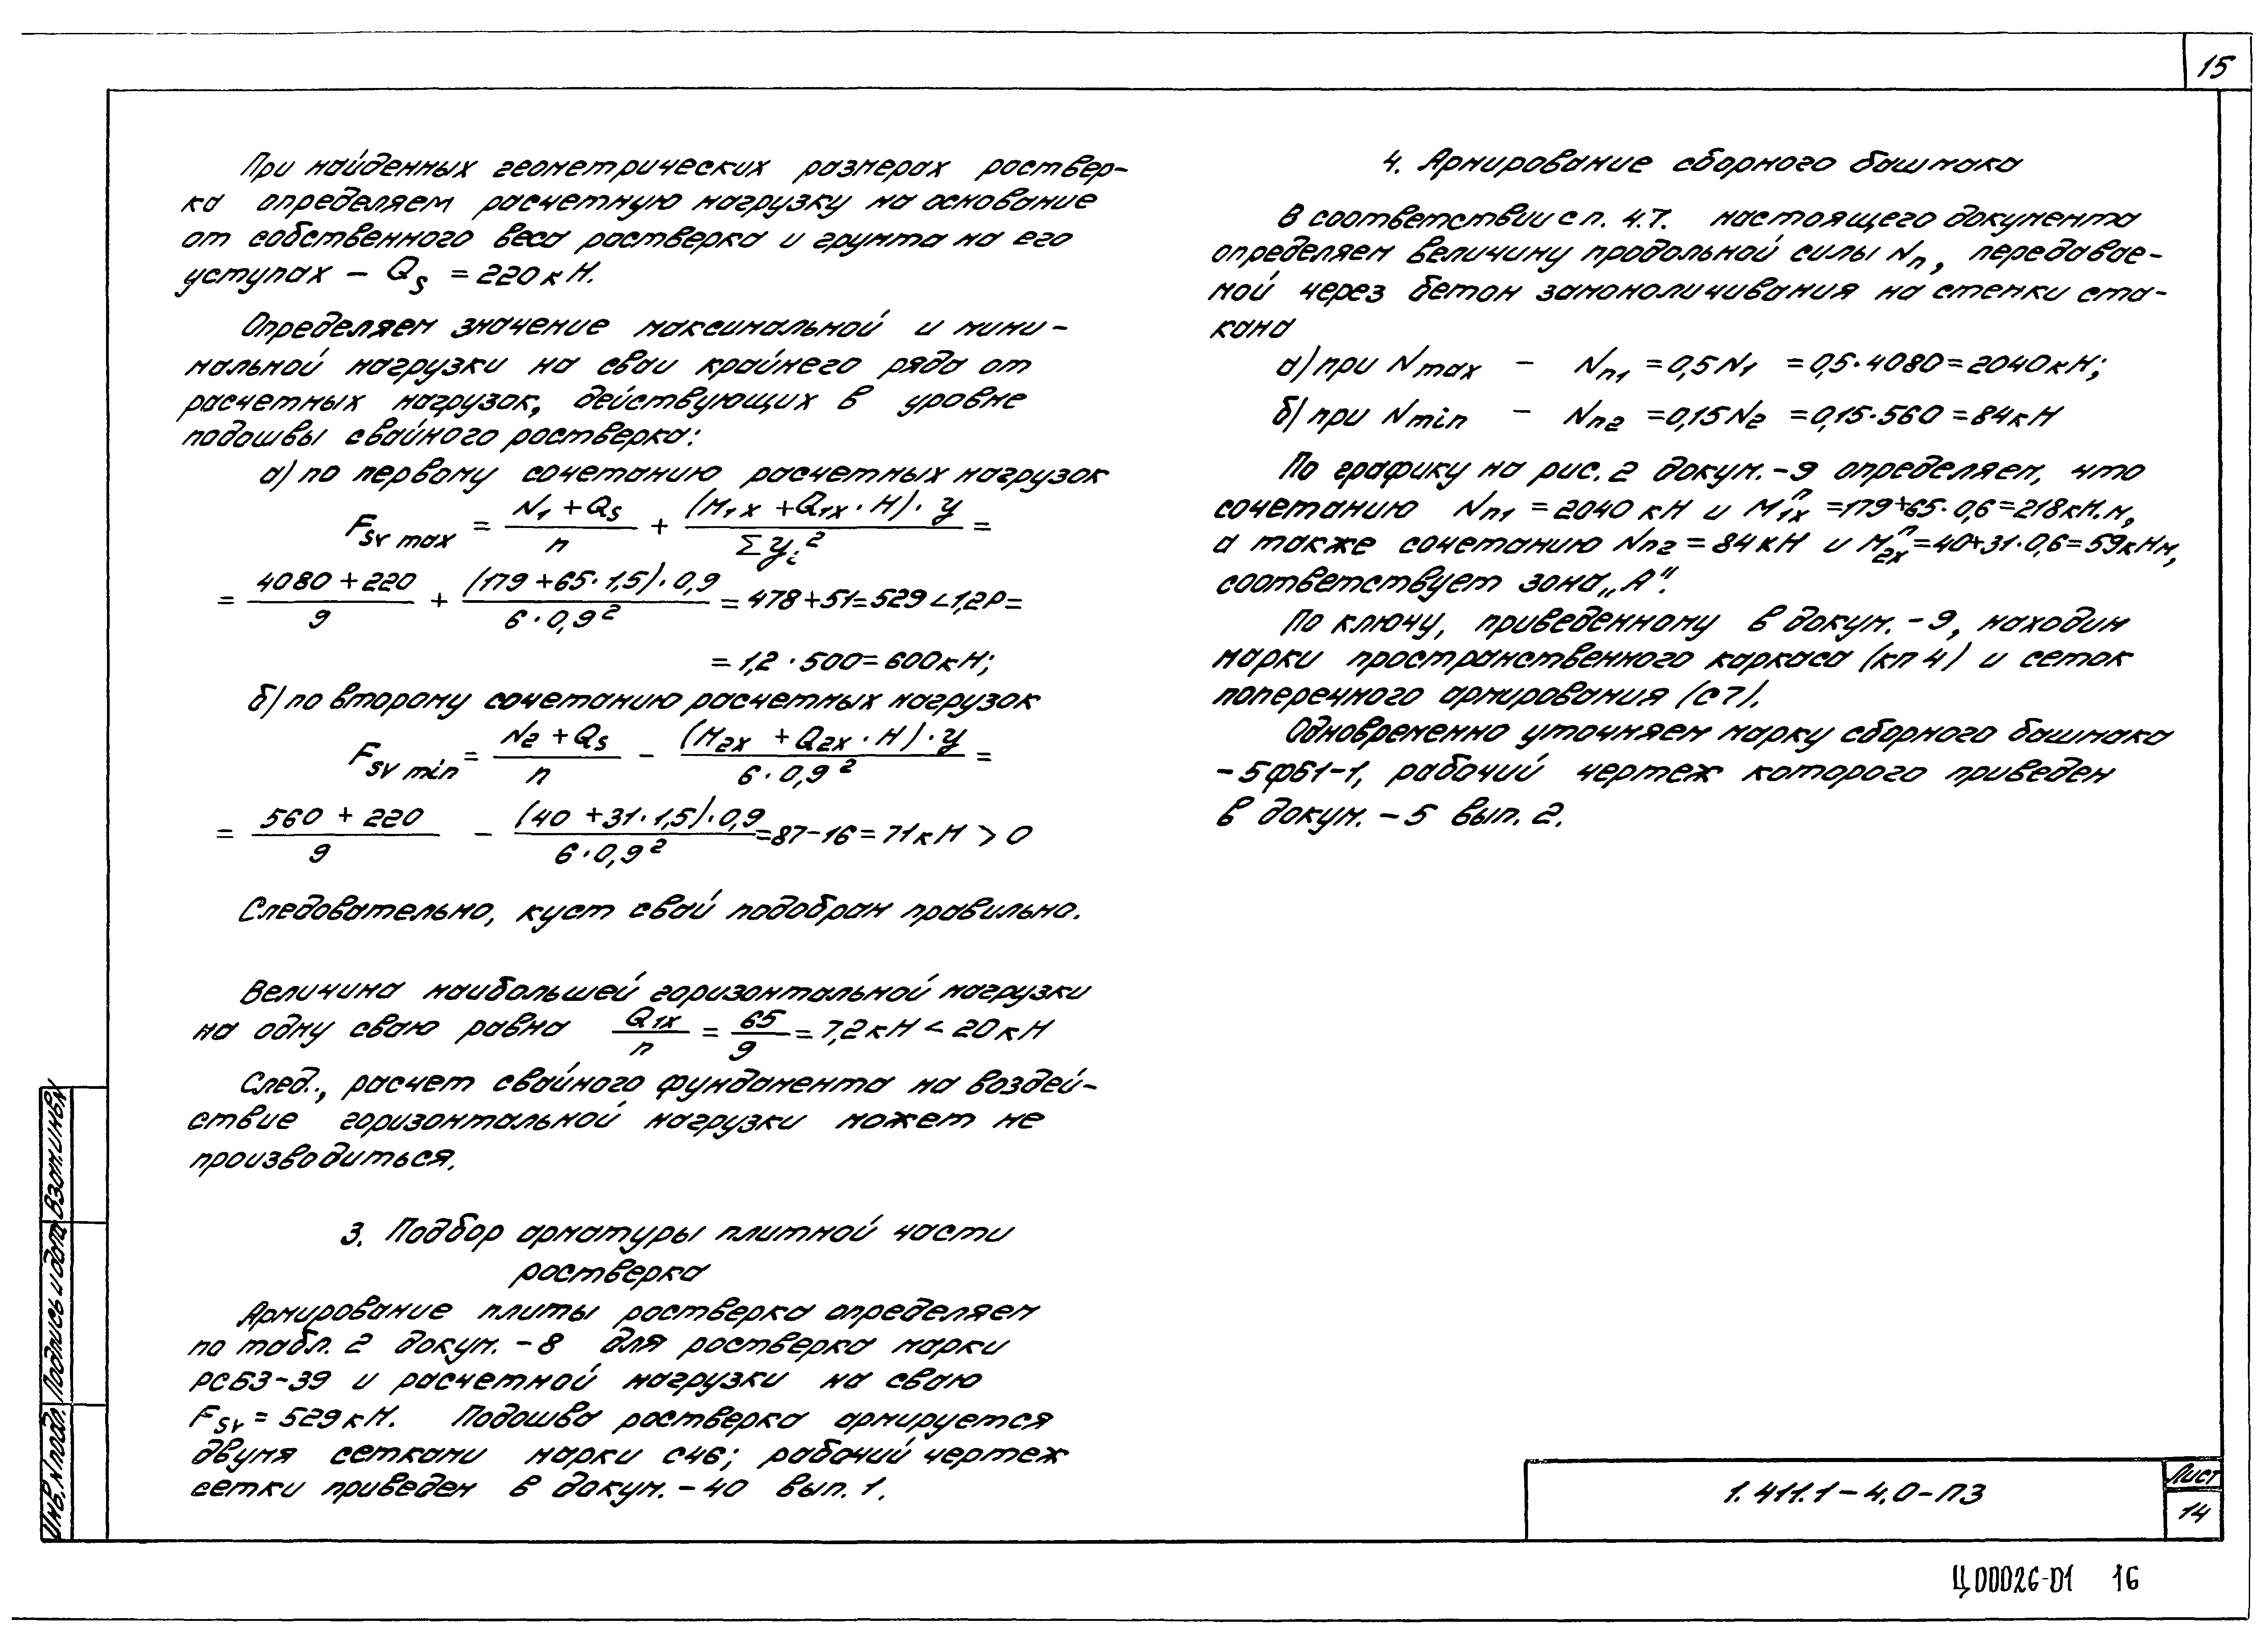 15
При найденных геометрических размерах роствер-
ка определяем расчетную нагрузку на основание
от собственного веса ростверка и грунта на его
уступах – Qs = 220 кН.
Определяем значение максимальной и мини-
мальной нагрузки на сваи крайнего ряда от
расчетных нагрузок, действующих в уровне
подошвы свайного ростверка:
а) по первому сочетанию расчетных нагрузок
Fsv max = (N1 + Qs)/n + ((M1x + Q1x · H) · y)/(Σ yi²) =
= (4080 + 220)/9 + ((179 + 65 · 1,5) · 0,9)/(6 · 0,9²) = 478 + 51 = 529 < 1,2P =
= 1,2 · 500 = 600 кН;
б) по второму сочетанию расчетных нагрузок
Fsv min = (N2 + Qs)/n – ((M2x + Q2x · H) · y)/(6 · 0,9²) =
= (560 + 220)/9 – ((40 + 31 · 1,5) · 0,9)/(6 · 0,9²) = 87 – 16 = 71 кН > 0
Следовательно, куст свай подобран правильно.
Величина наибольшей горизонтальной нагрузки
на одну сваю равна Q1x/n = 65/9 = 7,2 кН < 20 кН
След., расчет свайного фундамента на воздей-
ствие горизонтальной нагрузки может не
производиться.
3. Подбор арматуры плитной части
ростверка
Армирование плиты ростверка определяем
по табл. 2 докум. – 8 для ростверка марки
РСБ3-39 и расчетной нагрузки на сваю
Fsv = 529 кН. Подошва ростверка армируется
двумя сетками марки С46; рабочий чертеж
сетки приведен в докум. – 40 вып. 1.
4. Армирование сборного башмака
В соответствии с п. 4.7. настоящего документа
определяем величину продольной силы Nп, передавае-
мой через бетон замоноличивания на стенки ста-
кана
а) при Nmax – Nп1 = 0,5N1 = 0,5 · 4080 = 2040 кН;
б) при Nmin – Nп2 = 0,15N2 = 0,15 · 560 = 84 кН
По графику на рис. 2 докум. – 9 определяем, что
сочетанию Nп1 = 2040 кН и Mп1x = 179 + 65 · 0,6 = 218 кН.м,
а также сочетанию Nп2 = 84 кН и Mп2x = 40 + 31 · 0,6 = 59 кНм,
соответствует зона „А".
По ключу, приведенному в докум. – 9, находим
марки пространственного каркаса (кп 4) и сеток
поперечного армирования (с7).
Одновременно уточняем марку сборного башмака
– 5ФБ1-1, рабочий чертеж которого приведен
в докум. – 5 вып. 2.
Инв. N подл.
Подпись и дата
Взам. инв. N
1.411.1 – 4.0 – ПЗ
Лист
14
Ц00026-01 16